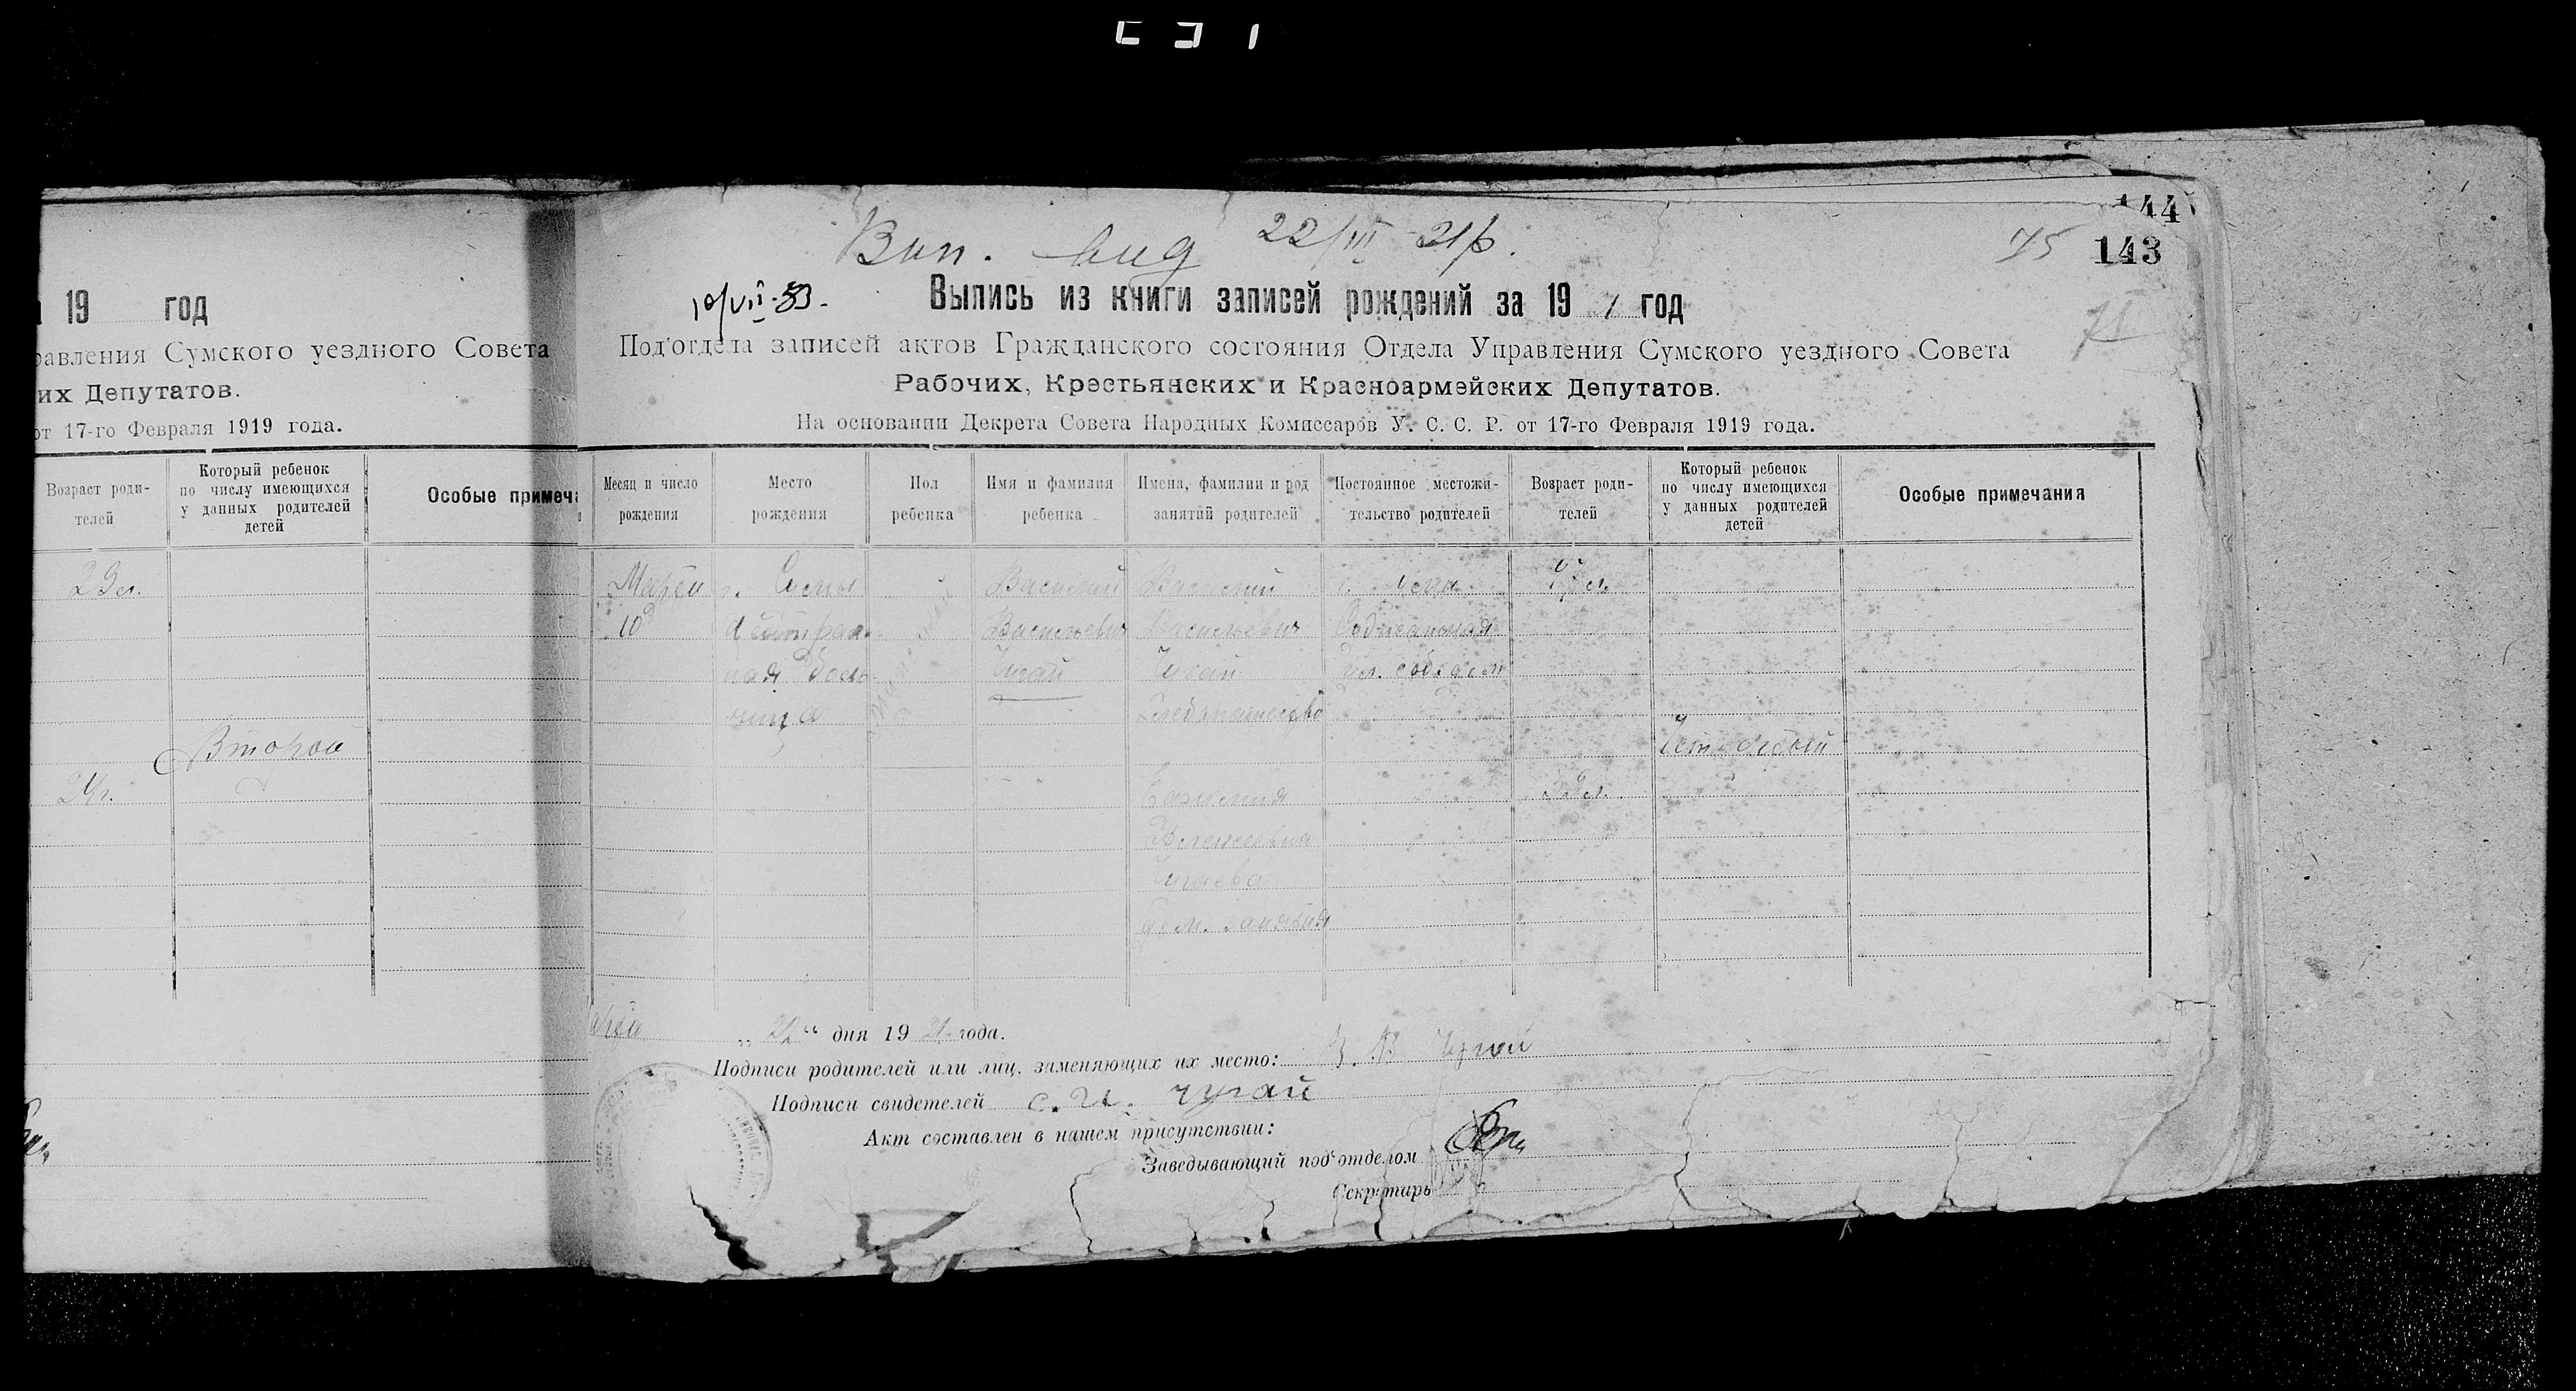 144
75 143
Вип. вид 22/III 21р.
10/VII-53.
19 год
равления Сумского уездного Совета
их Депутатов.
от 17-го Февраля 1919 года.
Возраст роди-
телей
Который ребенок
по числу имеющихся
у данных родителей
детей
Особые примеча
29 л.
Второй
24 г.
Выпись из книги записей рождений за 19 1 год
Под'отдела записей актов Гражданского состояния Отдела Управления Сумского уездного Совета
Рабочих, Крестьянских и Красноармейских Депутатов.
На основании Декрета Совета Народных Комиссаров У. С. С. Р. от 17-го Февраля 1919 года.
Месяц и число
рождения
Место
рождения
Пол
ребенка
Имя и фамилия
ребенка
Имена, фамилии и род
занятий родителей
Постоянное местожи-
тельство родителей
Возраст роди-
телей
Который ребенок
по числу имеющихся
у данных родителей
детей
Особые примечания
10
г. Сумы
ная боль-
ница
Василий
Васильевич
Чугай
Василий
Васильевич
Чугай
соб. дом
Евфимия
Алексеевна
Чугаева
дом. занятия
л.
л.
„ 22 “ дня 19 21 года.
Подписи родителей или лиц, заменяющих их место: В. Чугай
Подписи свидетелей С. И. Чугай
Акт составлен в нашем присутствии:
Заведывающий под'отделом
Секретарь